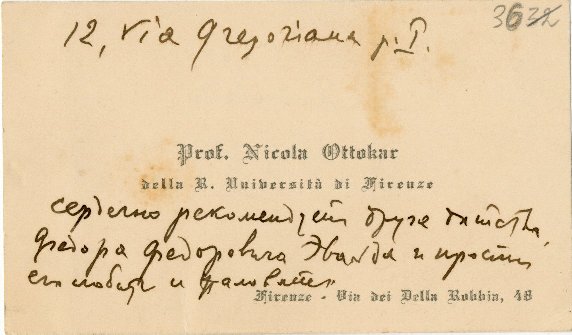 3632
12, Via Gregoriana p. I.
Prof. Nicola Ottokar
della R. Università di Firenze
сердечно рекомендует друга детства,
Федора Федоровича Эвальда и просит
его любить и жаловать
Firenze - Via dei Della Robbia, 48